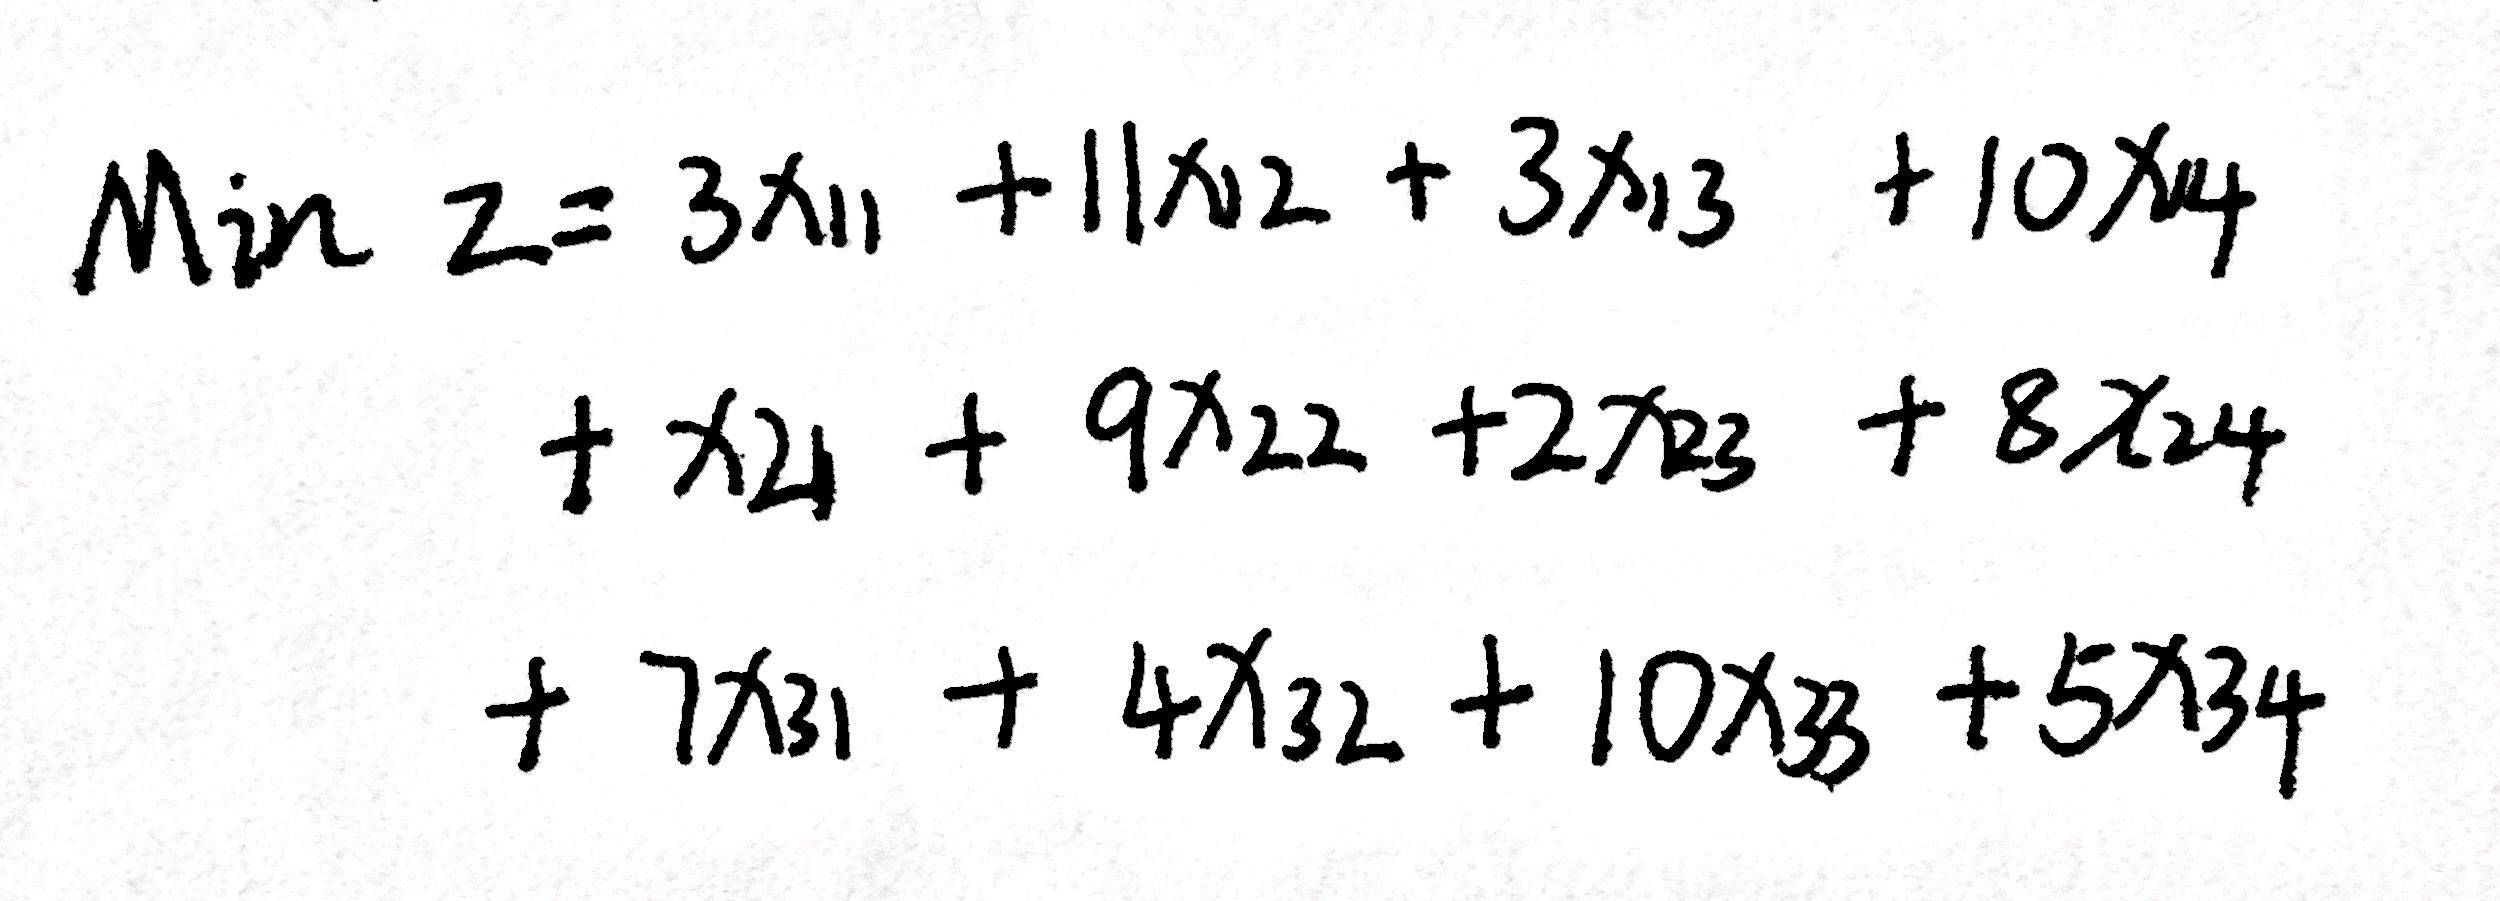 Min z = 3x11 + 11x12 + 3x13 + 10x14
+ x21 + 9x22 + 2x23 + 8x24
+ 7x31 + 4x32 + 10x33 + 5x34